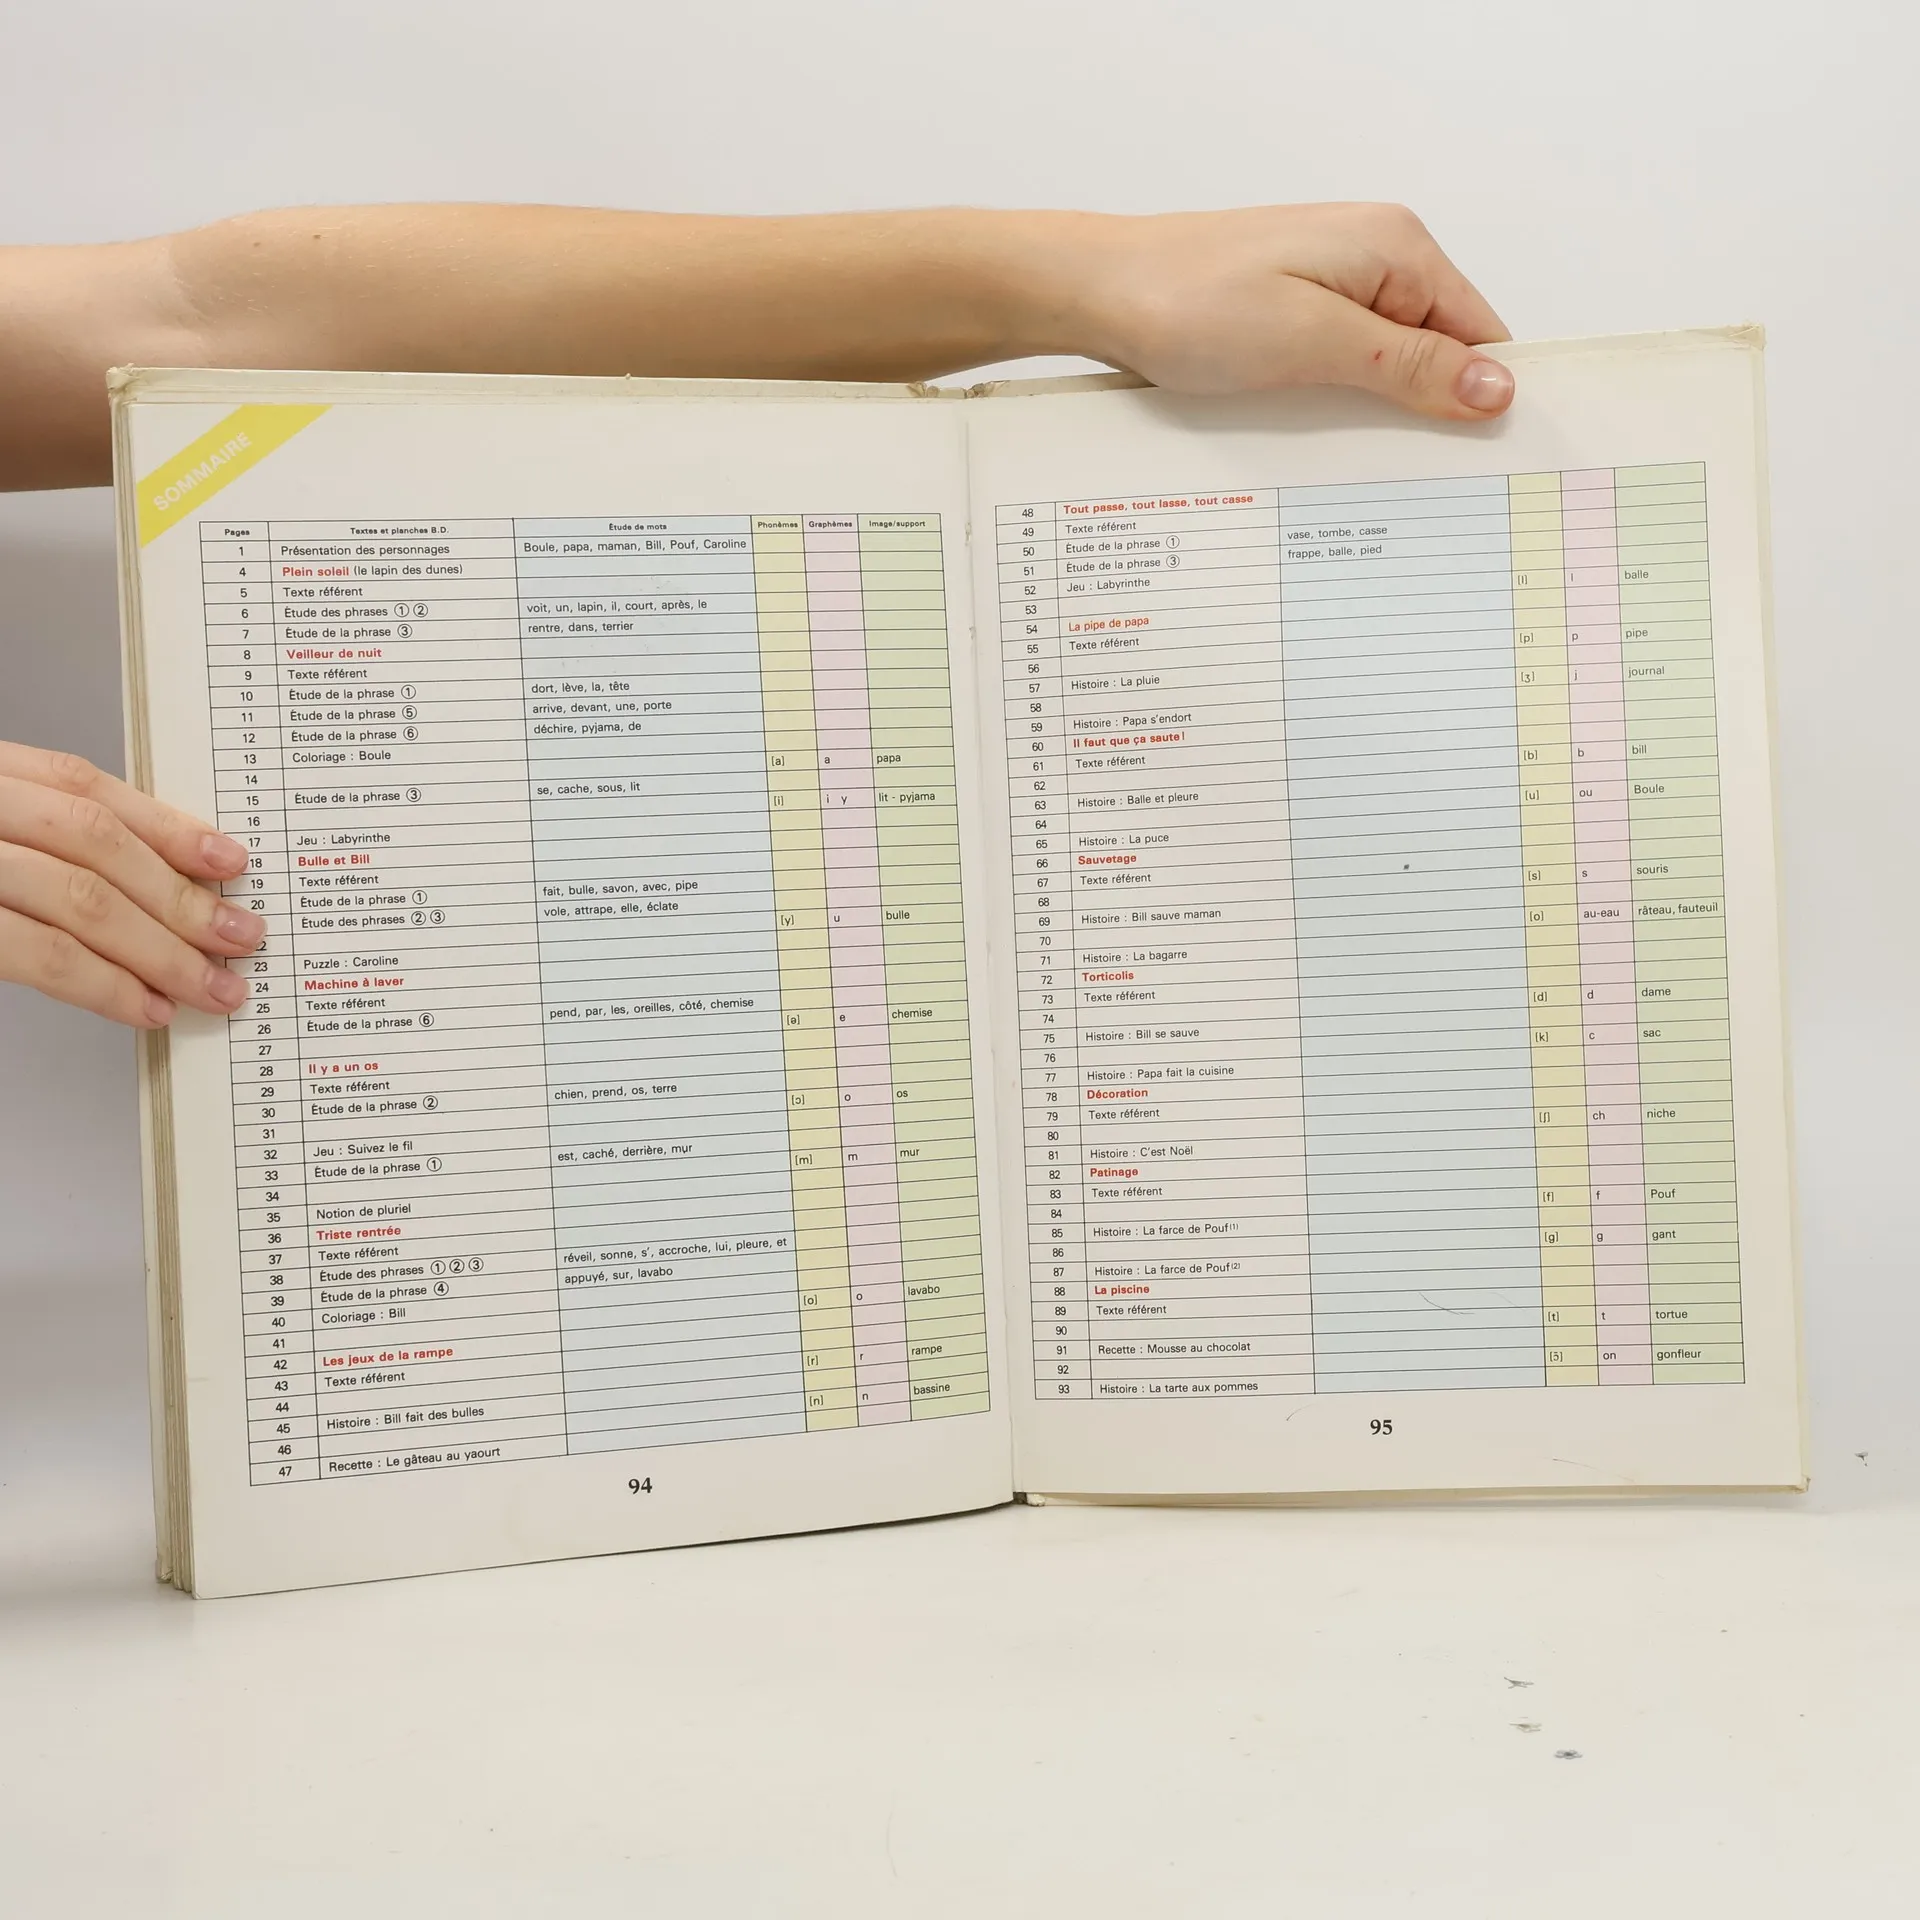 SOMMAIRE
Pages Textes et planches B.D. Étude de mots Phonèmes Graphèmes Image/support
1 Présentation des personnages Boule, papa, maman, Bill, Pouf, Caroline
4 Plein soleil (le lapin des dunes)
5 Texte référent
6 Étude des phrases ① ② voit, un, lapin, il, court, après, le
7 Étude de la phrase ③ rentre, dans, terrier
8 Veilleur de nuit
9 Texte référent
10 Étude de la phrase ① dort, lève, la, tête
11 Étude de la phrase ⑤ arrive, devant, une, porte
12 Étude de la phrase ⑥ déchire, pyjama, de
13 Coloriage : Boule [a] a papa
14
15 Étude de la phrase ③ se, cache, sous, lit [i] i y lit - pyjama
16
17 Jeu : Labyrinthe
18 Bulle et Bill
19 Texte référent
20 Étude de la phrase ① fait, bulle, savon, avec, pipe
Étude des phrases ② ③ vole, attrape, elle, éclate [y] u bulle
22
23 Puzzle : Caroline
24 Machine à laver
25 Texte référent
26 Étude de la phrase ⑥ pend, par, les, oreilles, côté, chemise [ə] e chemise
27
28 Il y a un os
29 Texte référent
30 Étude de la phrase ② chien, prend, os, terre [ɔ] o os
31
32 Jeu : Suivez le fil
33 Étude de la phrase ① est, caché, derrière, mur [m] m mur
34
35 Notion de pluriel
36 Triste rentrée
37 Texte référent
38 Étude des phrases ① ② ③ réveil, sonne, s', accroche, lui, pleure, et
39 Étude de la phrase ④ appuyé, sur, lavabo
40 Coloriage : Bill [o] o lavabo
41
42 Les jeux de la rampe
43 Texte référent [r] r rampe
44
45 Histoire : Bill fait des bulles [n] n bassine
46
47 Recette : Le gâteau au yaourt
94
48 Tout passe, tout lasse, tout casse
49 Texte référent
50 Étude de la phrase ① vase, tombe, casse
51 Étude de la phrase ③ frappe, balle, pied
52 Jeu : Labyrinthe [l] l balle
53
54 La pipe de papa
55 Texte référent [p] p pipe
56
57 Histoire : La pluie [ʒ] j journal
58
59 Histoire : Papa s'endort
60 Il faut que ça saute !
61 Texte référent [b] b bill
62
63 Histoire : Balle et pleure [u] ou Boule
64
65 Histoire : La puce
66 Sauvetage
67 Texte référent [s] s souris
68
69 Histoire : Bill sauve maman [o] au-eau râteau, fauteuil
70
71 Histoire : La bagarre
72 Torticolis
73 Texte référent [d] d dame
74
75 Histoire : Bill se sauve [k] c sac
76
77 Histoire : Papa fait la cuisine
78 Décoration
79 Texte référent [ʃ] ch niche
80
81 Histoire : C'est Noël
82 Patinage
83 Texte référent [f] f Pouf
84
85 Histoire : La farce de Pouf (1) [g] g gant
86
87 Histoire : La farce de Pouf (2)
88 La piscine
89 Texte référent [t] t tortue
90
91 Recette : Mousse au chocolat [ɔ̃] on gonfleur
92
93 Histoire : La tarte aux pommes
95